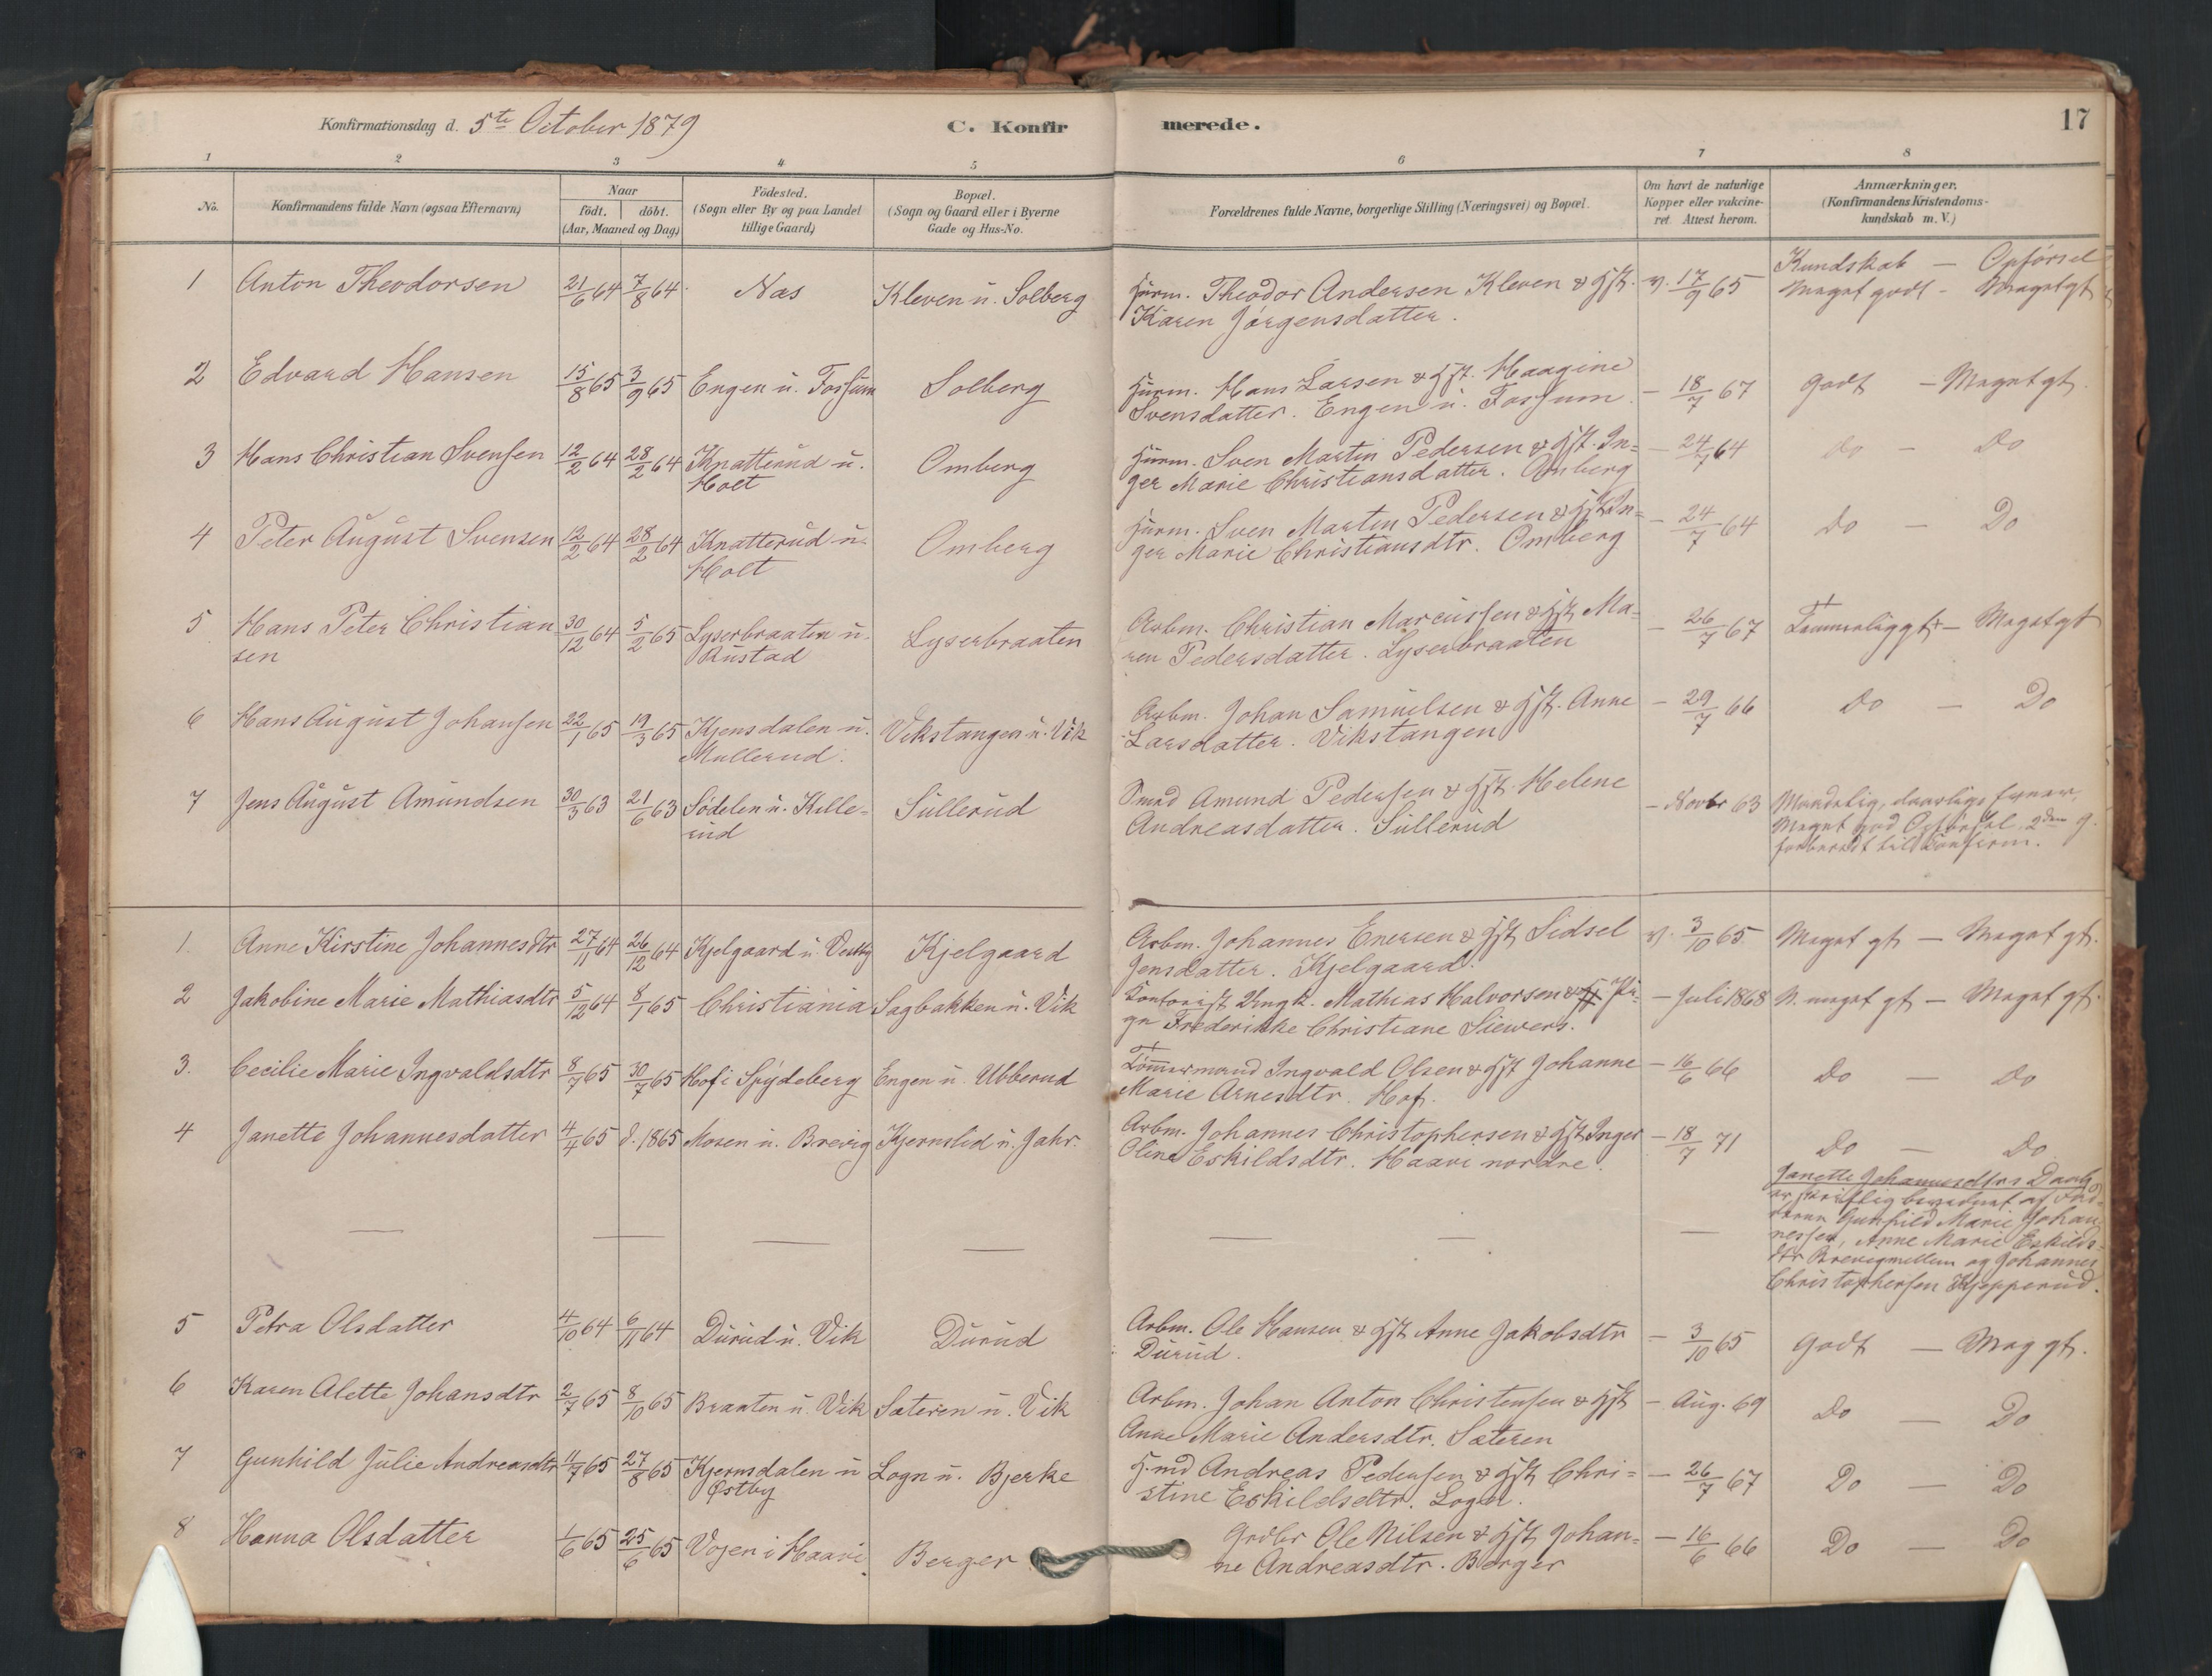 Konfirmationsdag d. 5te October 1879 C. Konfirmerede. 17
1 2 3 4 5 6 7 8
No. Konfirmandens fulde Navn (ogsaa Efternavn)
Naar
födt. döbt.
(Aar, Maaned og Dag)
Födested.
(Sogn eller By og paa Landet
tillige Gaard)
Bopæl.
(Sogn og Gaard eller i Byerne
Gade og Hus-No.
Forældrenes fulde Navne, borgerlige Stilling (Næringsvei) og Bopæl.
Om havt de naturlige
Kopper eller vakcine-
ret. Attest herom.
Anmærkninger.
(Konfirmandens Kristendoms-
kundskab m. V.)
Kundskab — Opførsel
1 Anton Theodorsen 21/6 64 7/8 64 Næs Kleven u. Solberg Husm. Theodor Andersen Kleven & Hst. v. 17/9 65 Meget godt - Meget gt
Karen Jørgensdatter.
2 Edvard Hansen 15/8 65 3/9 65 Engen u. Fossum Solberg Husm. Hans Larsen & Hst. Maagine — 18/7 67 Godt — Meget gt.
Svensdatter. Engen u. Fossum.
3 Hans Christian Svensen 12/2 64 28/2 64 Knatterud u. Omberg Husm. Sven Martin Pedersen & Hst. In= — 24/7 64 Do — Do
Holt ger Marie Christiansdatter. Omberg
4 Peter August Svensen 12/2 64 28/2 64 Knatterud u. Omberg Husm. Sven Martin Pedersen & Hst In= — 24/7 64 Do — Do
Holt ger Marie Christiansdtr. Omberg
5 Hans Peter Christian 30/12 64 5/2 65 Lyserbraaten u. Lyserbraaten Arbm. Christian Marcussen & Hst Ma= — 26/7 67 Temmeliggt — Meget gt
sen Rustad ren Pedersdatter. Lyserbraaten
6 Hans August Johansen 22/1 65 19/3 65 Kjensdalen u. Vikstangen u. Vik Arbm. Johan Samuelsen & Hst. Anne — 29/7 66 Do — Do
Mullerud. Larsdatter. Vikstangen
7 Jens August Amundsen 30/3 63 21/6 63 Sødelen u. Kille= Sullerud Smed Amund Pedersen & Hst. Helene — Novbr 63 Maadelig, daarlige Evner.
rud Andreasdatter. Sullerud Meget god Opførsel. 2den g.
forberedt til Konfirm.
1. Anne Kirstine Johannesdtr 27/11 64 26/12 64 Kjelgaard u. Vestby Kjelgaard Arbm. Johannes Enersen & Hst Sidsel v. 3/10 65 Meget gt — Meget gt.
Jensdatter. Kjelgaard.
2 Jakobine Marie Mathiasdtr 5/12 64 8/1 65 Christiania Sagbakken u. Vik Kontorist Ungk. Mathias Halvorsen & Pi= — Juli 1868 N. meget gt — Meget gt.
ge Frederikke Christiane Siewers.
3. Cecilie Marie Ingvaldsdtr 8/7 65 30/7 65 Hof i Spydeberg Engen u. Ubberud Tømmermand Ingvald Olsen & Hst Johanne — 16/6 66 Do — Do
Marie Arnesdtr. Hof.
4 Janette Johannesdatter 4/4 65 d. 1865 Mosen u. Brevig Kjernslid u. Jahr. Arbm. Johannes Christophersen & Hst Inger — 18/7 71 Do — Do
Oline Eskildsdtr. Haavi nordre.
Janette Johannesdtrs Daab
er skriftlig bevidnet af Fad=
derne Gunhild Marie Johan
nessen, Anne Marie Eskilds=
dtr Brevigmellem og Johannes
Christophersen Kjepperud.
5 Petra Olsdatter 4/10 64 6/11 64 Durud u. Vik Durud Arbm. Ole Hansen & Hst Anne Jakobsdtr — 3/10 65 Godt — Meg gt.
Durud.
6 Karen Alette Johansdtr 2/7 65 8/10 65 Braaten u. Vik Sæteren u. Vik Arbm. Johan Anton Christensen & Hst — Aug. 69 Do — Do
Anne Marie Andersdtr. Sæteren
7 Gunhild Julie Andreasdtr 11/7 65 27/8 65 Kjernsdalen u Logn u. Bjerke H.md Andreas Pedersen & Hst Chri= — 26/7 67 Do — Do
Østby stine Eskildsdtr. Logn.
8 Hanna Olsdatter 1/6 65 25/6 65 Vojen i Haavi. Berger Grdbr Ole Nilsen & Hst Johan= — 16/6 66 Do — Do
ne Andreasdtr. Berger